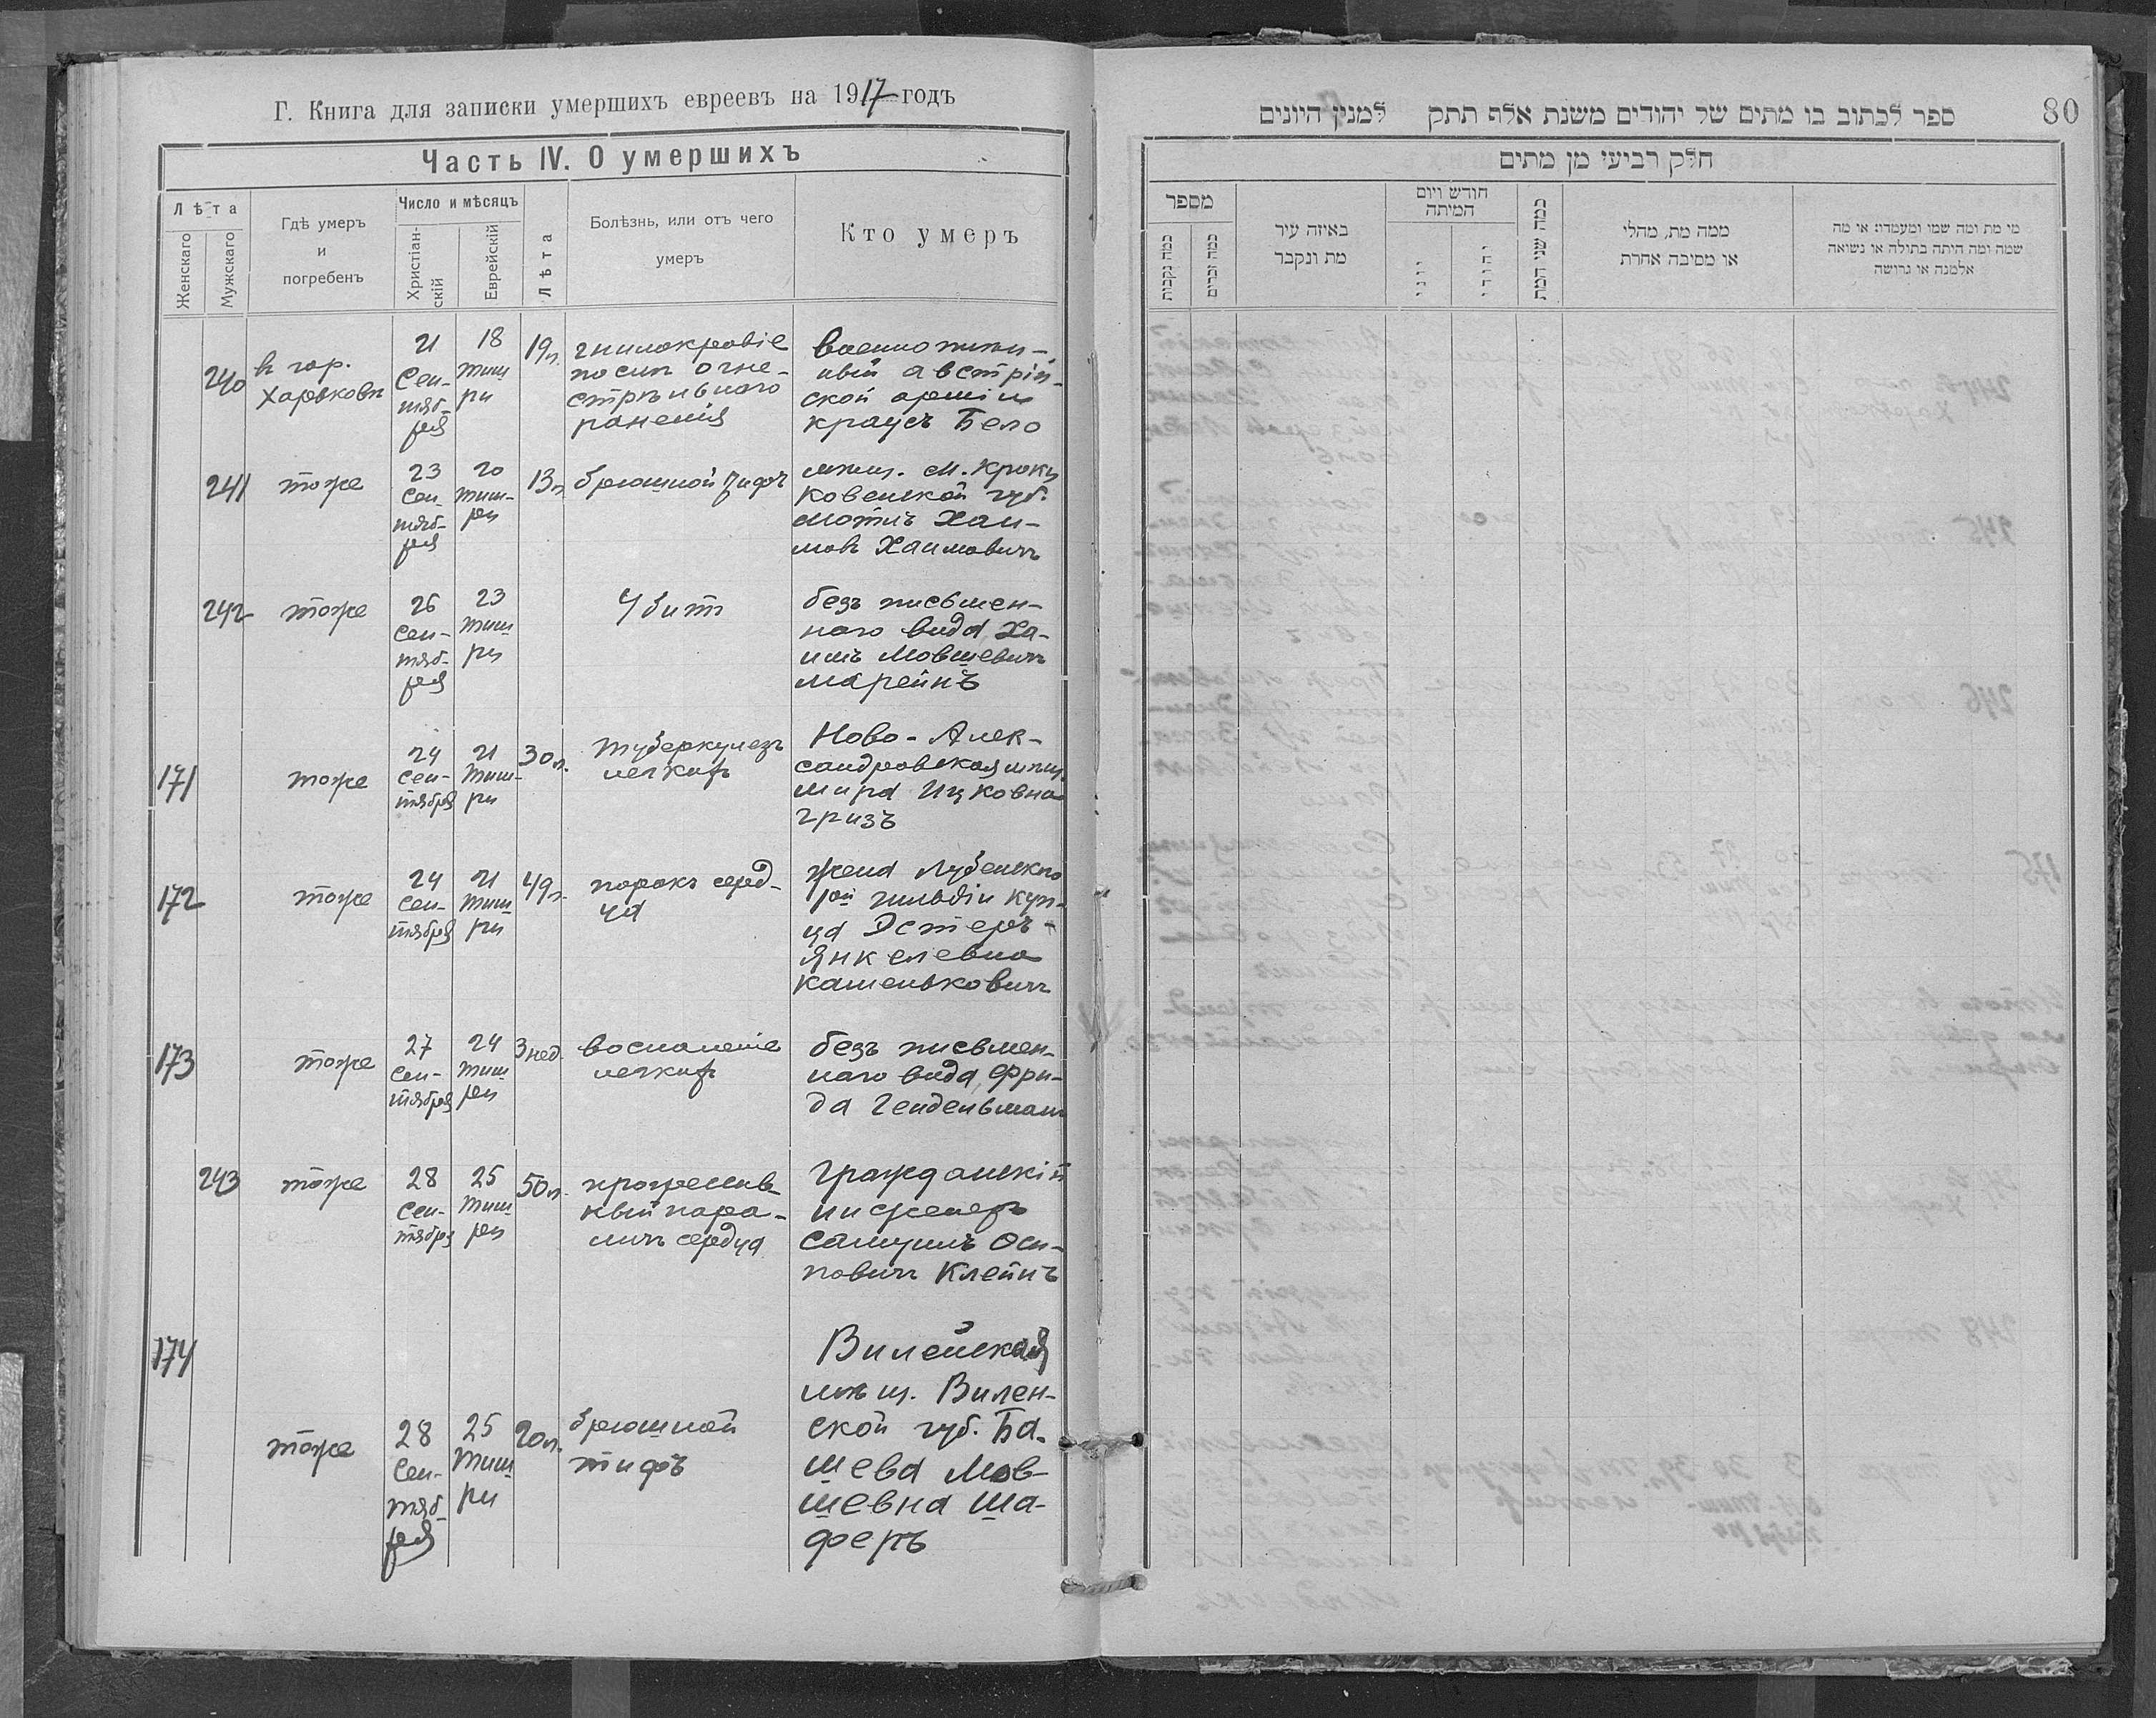 Г. Книга для записки умершихъ евреевъ на 1917 годъ
Часть IV. О умершихъ
Лѣта
Женскаго
Мужскаго
Гдѣ умеръ
и
погребенъ
Число и мѣсяцъ
Христіан-
скій
Еврейскій
Лѣта
Болѣзнь, или отъ чего
умеръ
Кто умеръ
240
в гор.
Харьковѣ
21
Сен-
тяб-
ря
18
тиш
ри
19 л.
гнилокровіе
послѣ огне-
стрѣльнаго
раненія
военноплѣн-
ный австрій-
ской арміи
Краусъ Бело
241
тоже
23
Сен
тяб-
ря
20
тиш-
ри
13 л.
брюшной тифъ
мѣщ. м. Кроки
Ковенской губ.
Мотль Хаи-
мовъ Хаимовичъ
242
тоже
26
Сен-
тяб-
ря
23
тиш
ри
Убит
безъ письмен-
наго вида, Ха-
имъ Мовшевичъ
Марейнъ
171
тоже
24
Сен-
тября
21
тиш-
ри
30 л.
туберкулезъ
легкихъ
Ново-Алек-
сандровская мѣщ.
Мира Ицковна
Гризъ
172
тоже
24
Сен-
тября
21
тиш
ри
49 л.
порокъ серд-
ца
жена Лубенскаго
гильдіи куп-
ца Эстеръ-
Янкелевна
Каменьковичъ
173
тоже
27
Сен-
тября
24
тиш
ри
3 нед.
воспаленіе
легкихъ
безъ письмен-
наго вида, Фри-
да Гендельман
243
тоже
28
Сен-
тября
25
тиш
ри
50 л.
прогрессив
ный пара-
личъ сердца
Гражданскій
инженеръ
Самуилъ Оси-
повичъ Клейнъ
174
тоже
28
Сен-
тяб-
ря
25
тиш
ри
20 л.
брюшной
тифъ
Вилейская
мѣщ. Вилен-
ской губ. Ба-
шева Мов-
шевна Ша-
феръ
80
ספר לכתוב בו מתים של יהודים משנת אלף תתק למנין היונים
חלק רביעי מן מתים
מספר
כמה נקבות
כמה זכרים
באיזה עיר
מת ונקבר
חודש ויום
המיתה
יוני
יהודי
כמה שני המת
ממה מת, מחלי
או מסיבה אחרת
מי מת ומה שמו ומעמדו: או מה
שמה ומה היתה בתילה או נשואה
אלמנה או גרושה